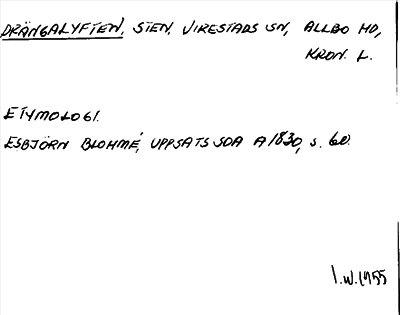 DRÄNGALYFTEN, STEN, VIRESTADS SN, ALLBO HD,
KRON. L.
ETYMOLOGI.
ESBJÖRN BLOHMÉ, UPPSATS SOA A 1830, s. 60.
I.W. 1955